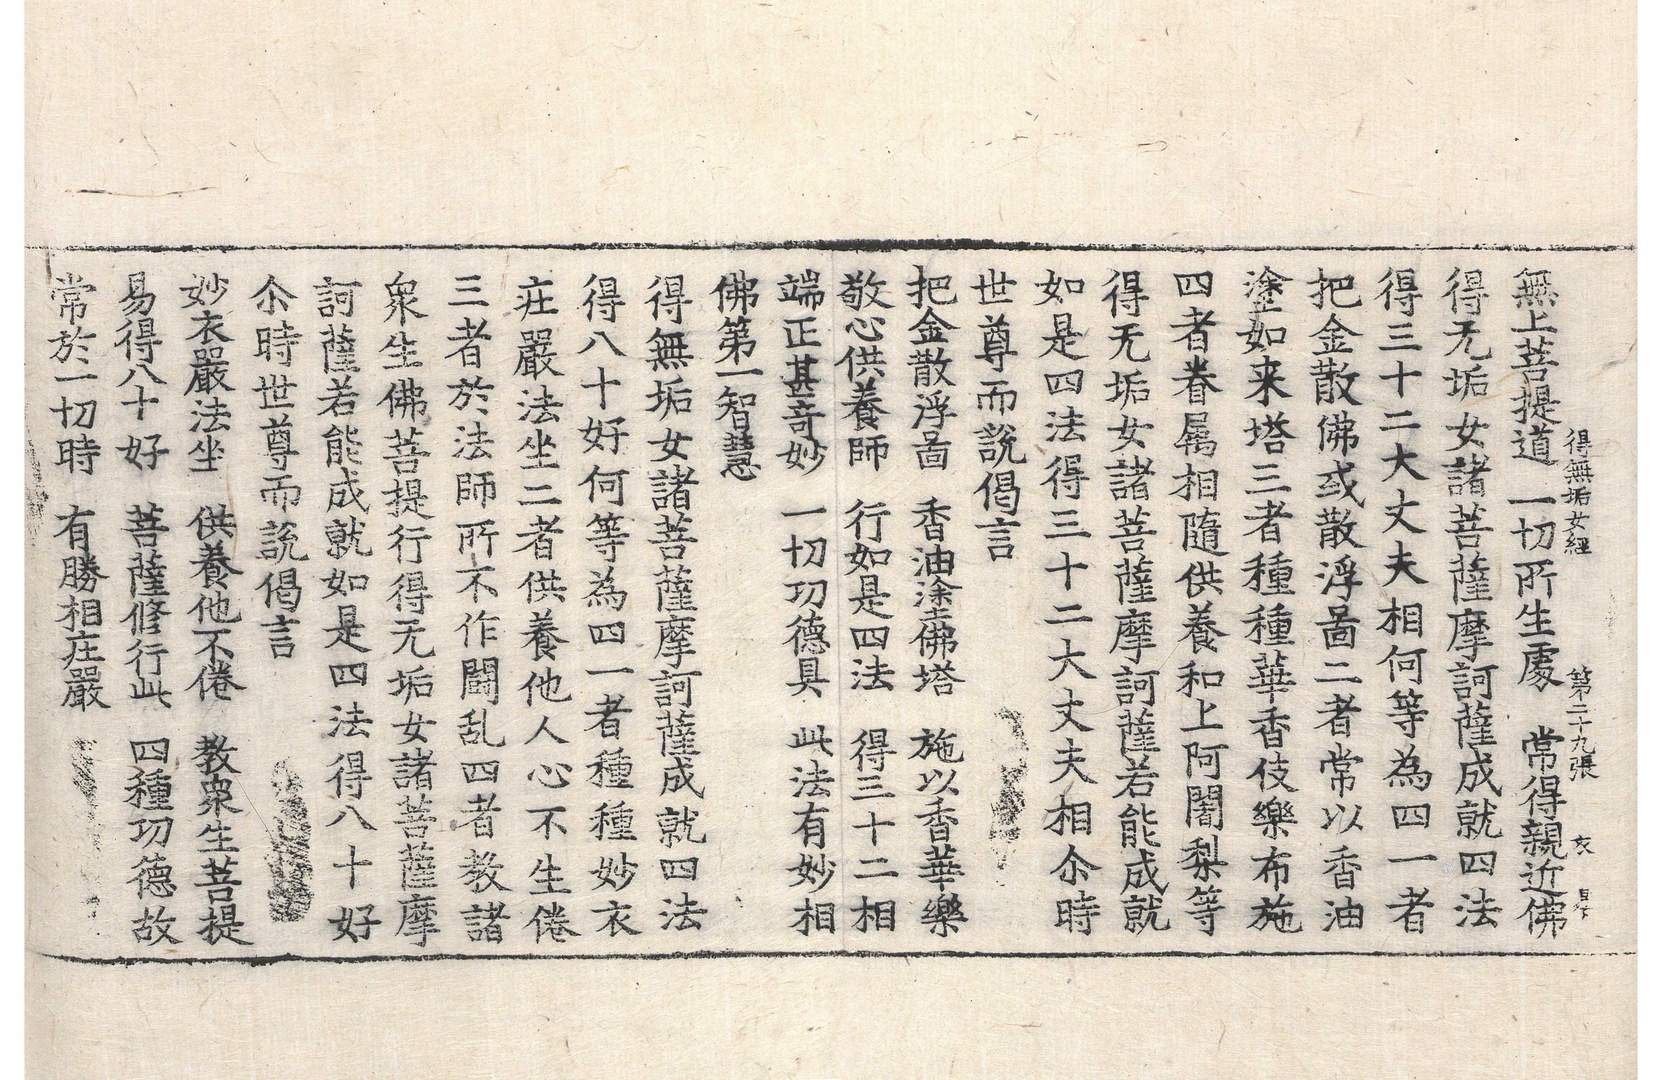 得無垢女經　第二十九張　衣
無上菩提道　一切所生處　常得親近佛
得无垢女諸菩薩摩訶薩成就四法
得三十二大丈夫相何等為四一者
把金散佛或散浮啚二者常以香油
塗如来塔三者種種華香伎樂布施
四者眷属相隨供養和上阿闍梨等
得无垢女諸菩薩摩訶薩若能成就
如是四法得三十二大丈夫相尒時
世尊而說偈言
把金散浮啚　香油塗佛塔　施以香華樂
敬心供養師　行如是四法　得三十二相
端正甚奇妙　一切功德具　此法有妙相
佛第一智慧
得無垢女諸菩薩摩訶薩成就四法
得八十好何等為四一者種種妙衣
庄嚴法坐二者供養他人心不生倦
三者於法師所不作闘乱四者教諸
衆生佛菩提行得无垢女諸菩薩摩
訶薩若能成就如是四法得八十好
尒時世尊而說偈言
妙衣嚴法坐　供養他不倦　教衆生菩提
易得八十好　菩薩修行此　四種功德故
常於一切時　有勝相庄嚴